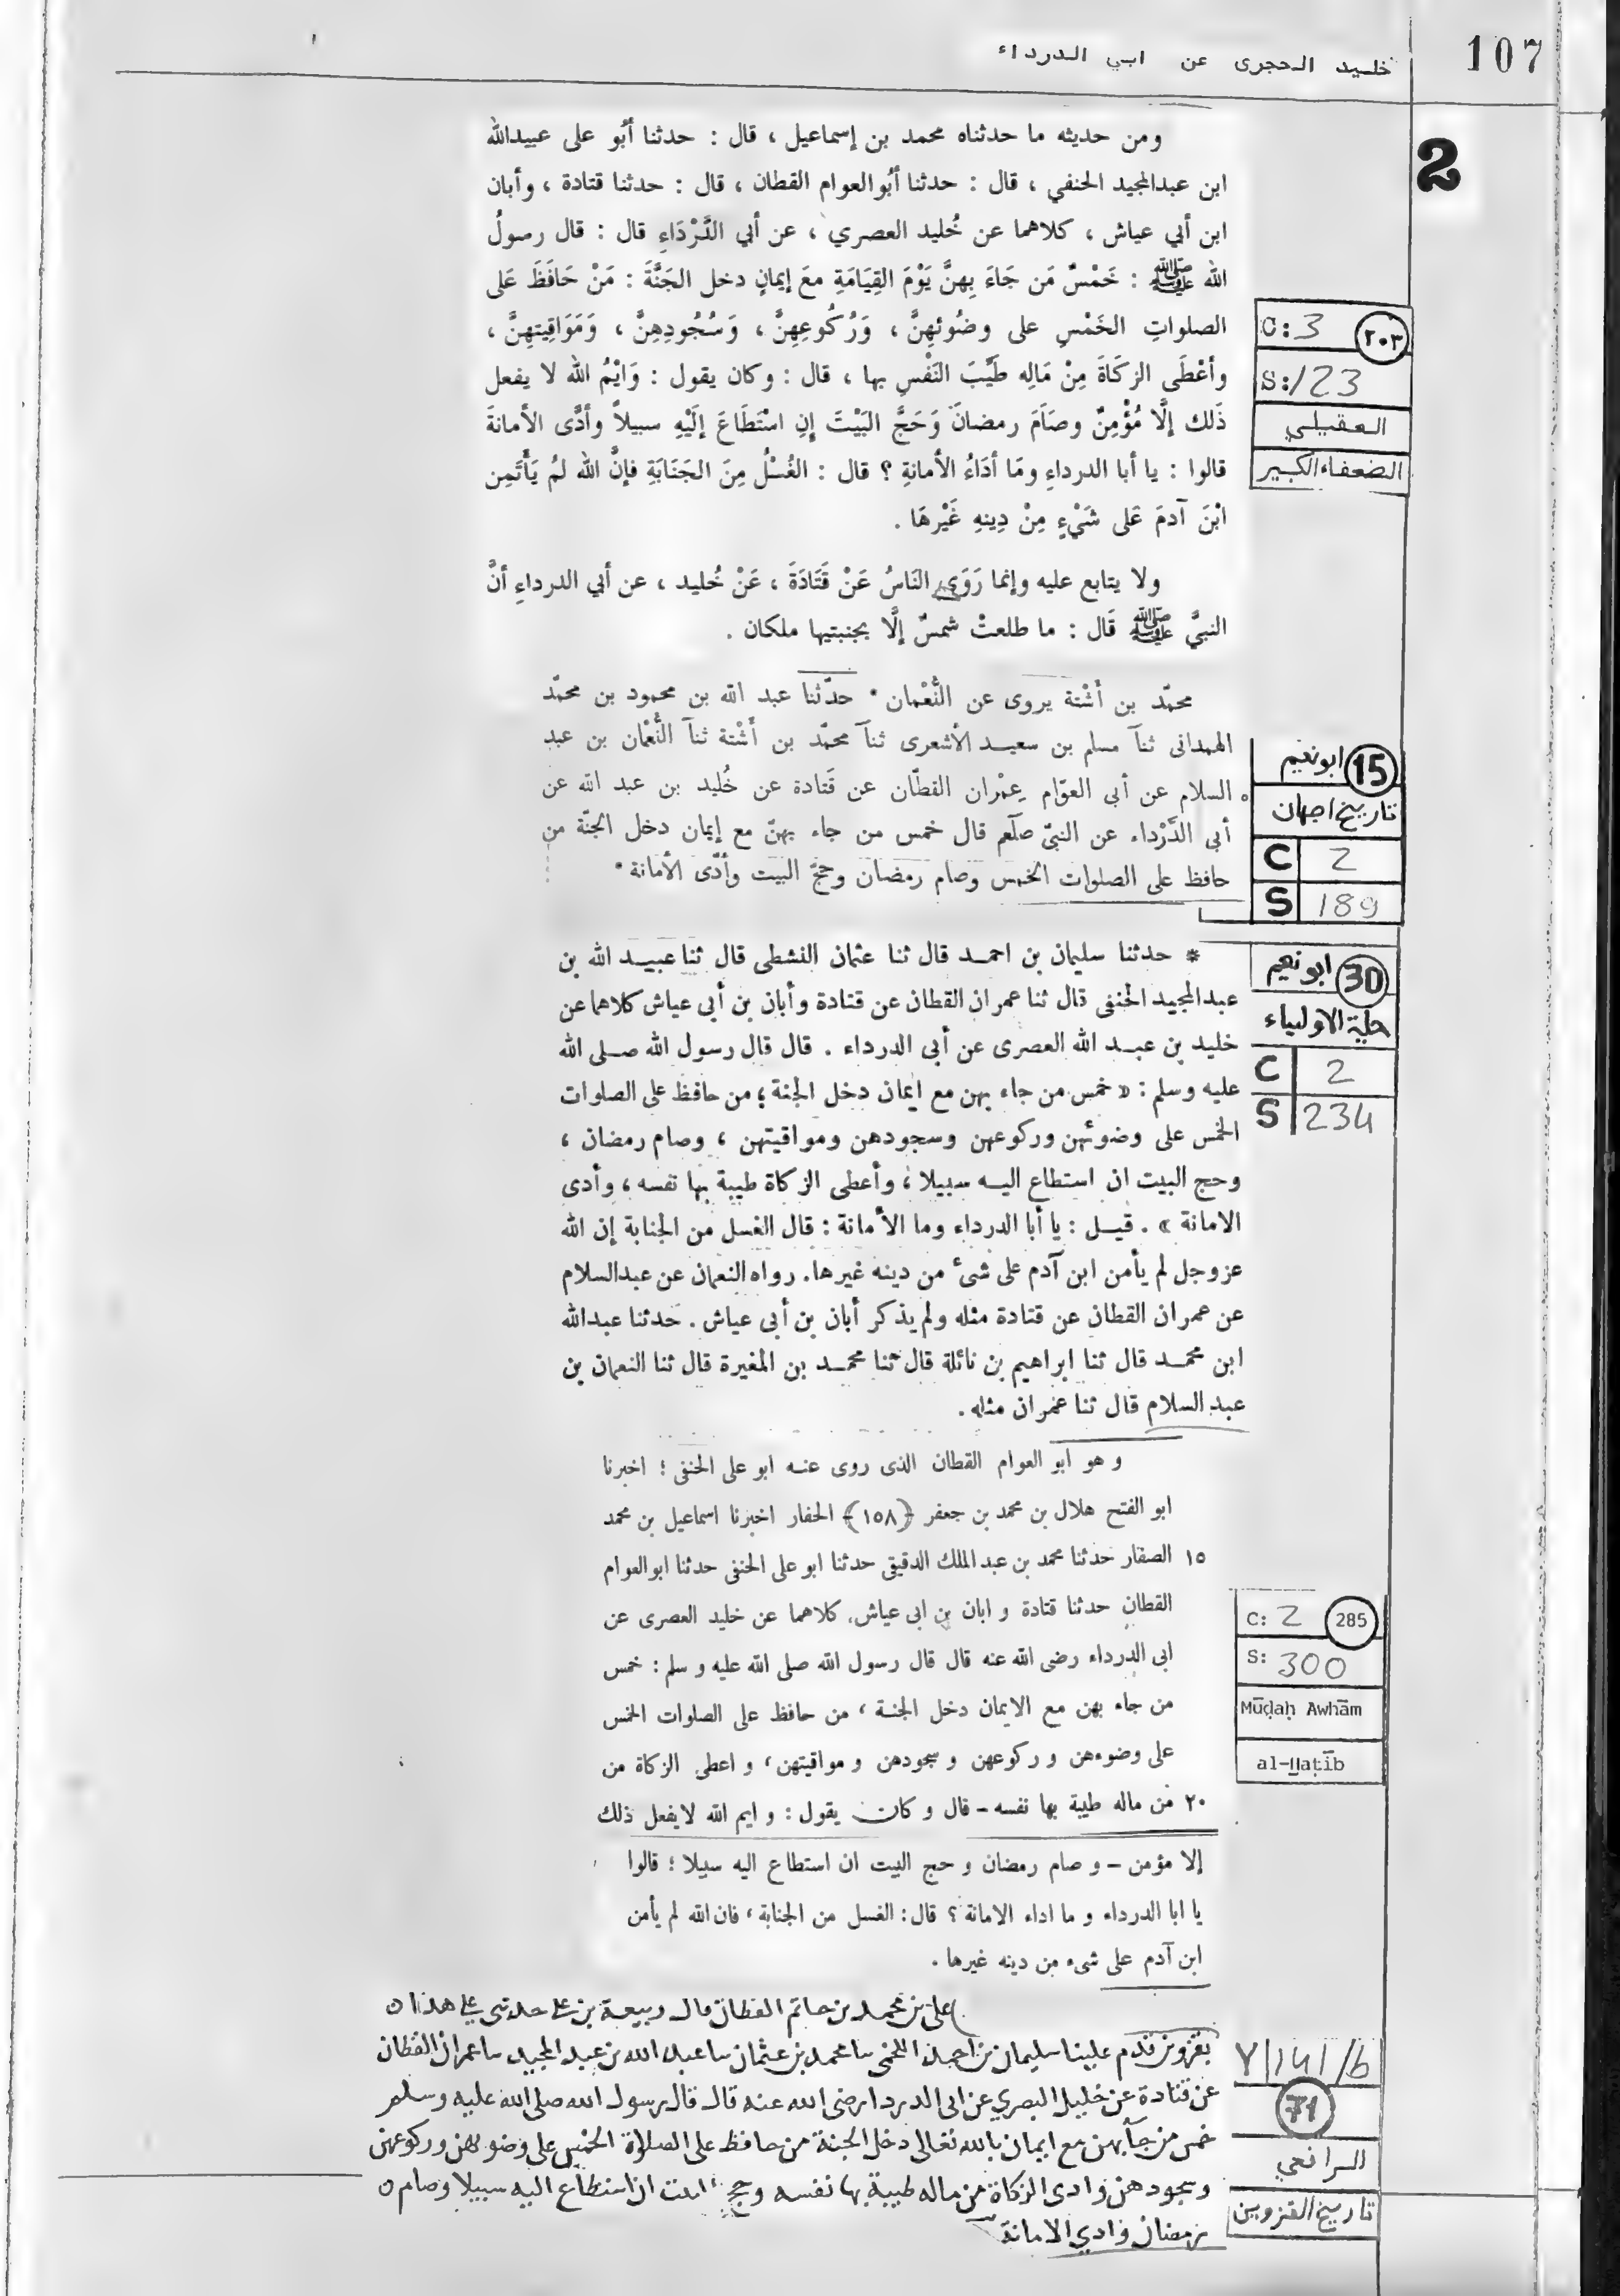 107
خليد الحجرى عن ابي الدرداء
2
ومن حديثه ما حدثناه محمد بن إسماعيل ، قال : حدثنا أبُو على عبيدالله
ابن عبدالمجيد الحنفي ، قال : حدثنا أبُوالعوام القطان ، قال : حدثنا قتادة ، وأبان
ابن أبي عياش ، كلاهما عن خُليد العصري ، عن أبي الدَّرْدَاءِ قال : قال رسولُ
الله ﷺ : خَمْسٌ مَن جَاءَ بِهنَّ يَوْمَ القِيَامَةِ معَ إيمانٍ دخل الجَنَّةَ : مَنْ حَافَظَ عَلى
الصلواتِ الخَمْسِ على وضُوئهِنَّ ، وَرُكُوعِهِنَّ ، وَسُجُودِهِنَّ ، وَمَوَاقِيتهِنَّ ،
وأعْطَى الزكَاةَ مِنْ مَالِه طَيَّبَ النَفْسِ بها ، قال : وكان يقول : وَايْمُ الله لا يفعل
ذَلك إلَّا مُؤْمِنٌ وصَاَمَ رمضانَ وَحَجَّ البَيْتَ إِنِ اسْتَطَاعَ إلَيْهِ سبيلاً وأدَّى الأمانةَ
قالوا : يا أبا الدرداءِ ومَا أدَاءُ الأمانةِ ؟ قال : الغُسْلُ مِنَ الجَنَابَةِ فإنَّ الله لمُ يَأتَمِن
ابْنَ آدمَ عَلى شَيْءٍ مِنْ دِينهِ غَيْرهَا .
C: 3 ٢٠٣
S: 123
العقيلي
الضعفاء الكبير
ولا يتابع عليه وإنما رَوَى النَاسُ عَنْ قَتَادَةَ ، عَنْ خُليد ، عن أبي الدرداءِ أنَّ
النبيَّ ﷺ قَال : ما طلعتْ شمسٌ إلَّا بجنبتيها ملكان .
محمّد بن أَشْتة يروى عن النُّعْمان * حدّثنا عبد الله بن محمود بن محمّد
الهمدانى ثنآ مسلم بن سعيد الأشعرى ثنآ محمّد بن أَشْتة ثنآ النُّعْمان بن عبد
السلام عن أبى العوّام عِمْران القطّان عن قَتادة عن خُليد بن عبد الله عن
أبى الدَّرْداء عن النبىّ صلّعم قال خمس من جاء بهنّ مع إيمان دخل الجنّة من
حافظ على الصلوات الخمس وصام رمضان وحجّ البيت وأدّى الأمانة *
ابونعيم 15
تاريخ اصبهان
C 2
S 189
* حدثنا سليمان بن احمد قال ثنا عثمان النشطى قال ثنا عبيد الله بن
عبدالمجيد الحنفى قال ثنا عمران القطان عن قتادة وأبان بن أبى عياش كلاهما عن
خليد بن عبد الله العصرى عن أبى الدرداء . قال قال رسول الله صلى الله
عليه وسلم : « خمس من جاء بهن مع إيمان دخل الجنة ؛ من حافظ على الصلوات
الخمس على وضوئهن وركوعهن وسجودهن ومواقيتهن ، وصام رمضان ،
وحج البيت ان استطاع اليه سبيلا ، وأعطى الزكاة طيبة بها نفسه ، وأدى
الامانة » . قيل : يا أبا الدرداء وما الأمانة : قال الغسل من الجنابة إن الله
عزوجل لم يأمن ابن آدم على شىء من دينه غيرها. رواه النعمان عن عبدالسلام
عن عمران القطان عن قتادة مثله ولم يذكر أبان بن أبى عياش . حدثنا عبدالله
ابن محمد قال ثنا ابراهيم بن نائلة قال ثنا محمد بن المغيرة قال ثنا النعمان بن
عبد السلام قال ثنا عمران مثله .
ابونعيم 30
حلية الاولياء
C 2
S 234
و هو ابو العوام القطان الذى روى عنه ابو على الحنفى ؛ اخبرنا
ابو الفتح هلال بن محمد بن جعفر (١٥٨) الحفار اخبرنا اسماعيل بن محمد
١٥ الصفار حدثنا محمد بن عبد الملك الدقيقى حدثنا ابو على الحنفى حدثنا ابو العوام
القطان حدثنا قتادة و ابان بن ابى عياش، كلاهما عن خليد العصرى عن
ابى الدرداء رضى الله عنه قال قال رسول الله صلى الله عليه و سلم : خمس
من جاء بهن مع الايمان دخل الجنة ، من حافظ على الصلوات الخمس
على وضوءهن و ركوعهن و سجودهن و مواقيتهن ، و اعطى الزكاة من
٢٠ من ماله طيبة بها نفسه – قال و كان يقول : و ايم الله لا يفعل ذلك
إلا مؤمن – و صام رمضان و حج البيت ان استطاع اليه سبيلا ؛ قالوا
يا ابا الدرداء و ما اداء الامانة ؟ قال : الغسل من الجنابة ، فان الله لم يأمن
ابن آدم على شىء من دينه غيرها .
C: 2 285
S: 300
Mūḍaḥ Awhām
al-Ḫaṭīb
على بن محمد بن حاتم القطان قال ربيعة بن على حدثنى على هذا
بقزوين قدم علينا سليمان بن احمد اللخمى سا محمد بن عثمان سا عبد الله بن عبد المجيد سا عمران القطان
عن قتادة عن خليل البصري عن ابى الدردا رضى الله عنه قال قال رسول الله صلى الله عليه وسلم
خمس من جآ بهن مع ايمان بالله تعالى دخل الجنة من حافظ على الصلاة الخمس على وضوهن وركوعهن
وسجودهن وادى الزكاة من ماله طيبة بها نفسه وحج البيت ان استطاع اليه سبيلا وصام
رمضان وادي الامانة
Y/141/b
71
الرافعي
تاريخ القزوين